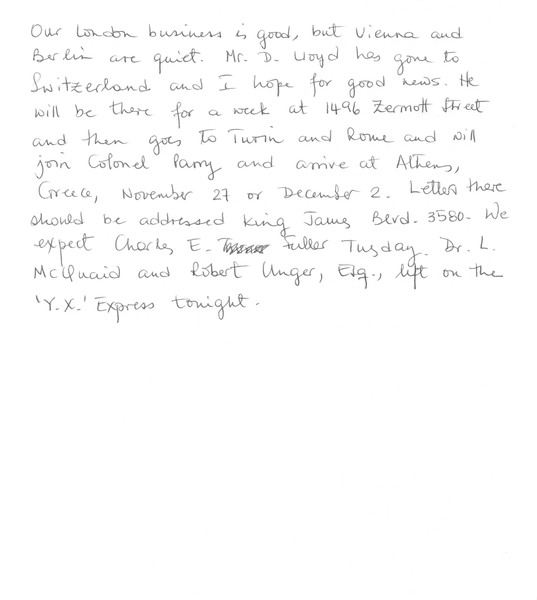 Our London business is good, but Vienna and
Berlin are quiet. Mr. D. Lloyd has gone to
Switzerland and I hope for good news. He
will be there for a week at 1496 Zermott Street
and then goes to Turin and Rome and will
join Colonel Parry and arrive at Athens,
Greece, November 27 or December 2. Letters there
should be addressed King James Blvd. 3580. We
expect Charles E. Fuller Tuesday. Dr. L.
McQuaid and Robert Unger, Esq., left on the
'Y.X.' Express tonight.